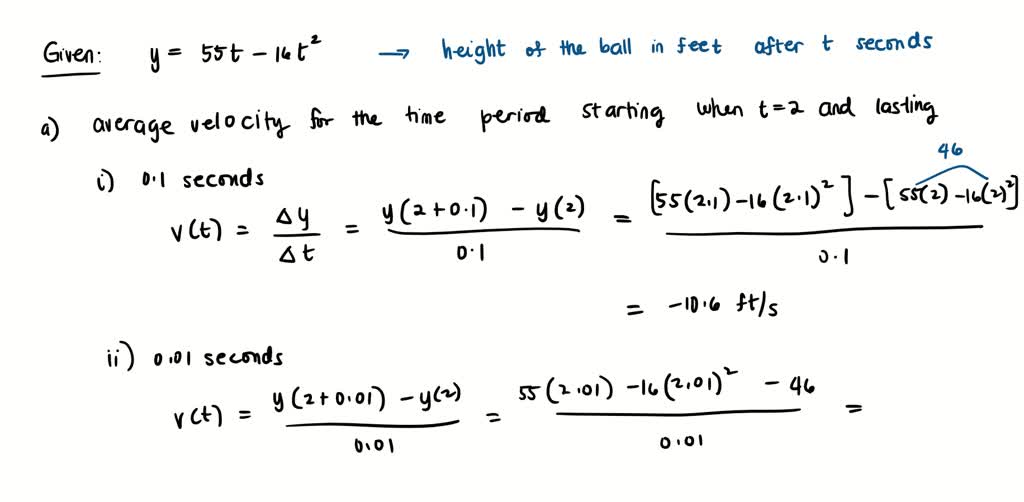 Given: y = 55t - 16t² → height of the ball in feet after t seconds
a) average velocity for the time period starting when t=2 and lasting
46
i) 0.1 seconds
v(t) = Δy/Δt = (y(2+0.1) - y(2))/0.1 = ([55(2.1) - 16(2.1)²] - [55(2) - 16(2)²])/0.1
= -10.6 ft/s
ii) 0.01 seconds
v(t) = (y(2+0.01) - y(2))/0.01 = (55(2.01) - 16(2.01)² - 46)/0.01 =